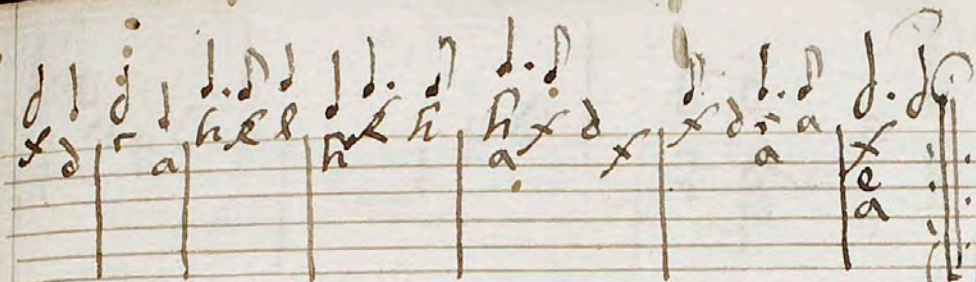 f d r a h k l h k h h f d f f d r a f
a a e
a